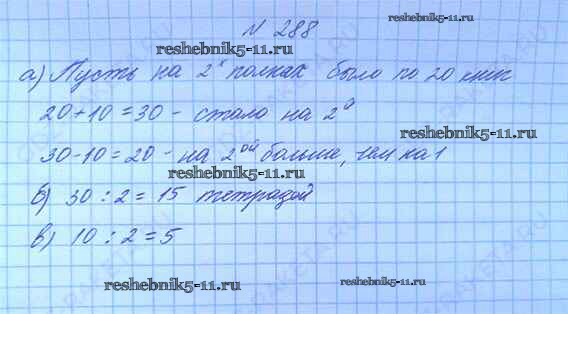 № 288
reshebnik5-11.ru
reshebnik5-11.ru
а) Пусть на 2х полках было по 20 книг
20+10=30 - стало на 2й
reshebnik5-11.ru
30-10=20 - на 2ой больше, чем на 1
reshebnik5-11.ru
б) 30 : 2 = 15 тетрадей
в) 10 : 2 = 5
reshebnik5-11.ru
reshebnik5-11.ru